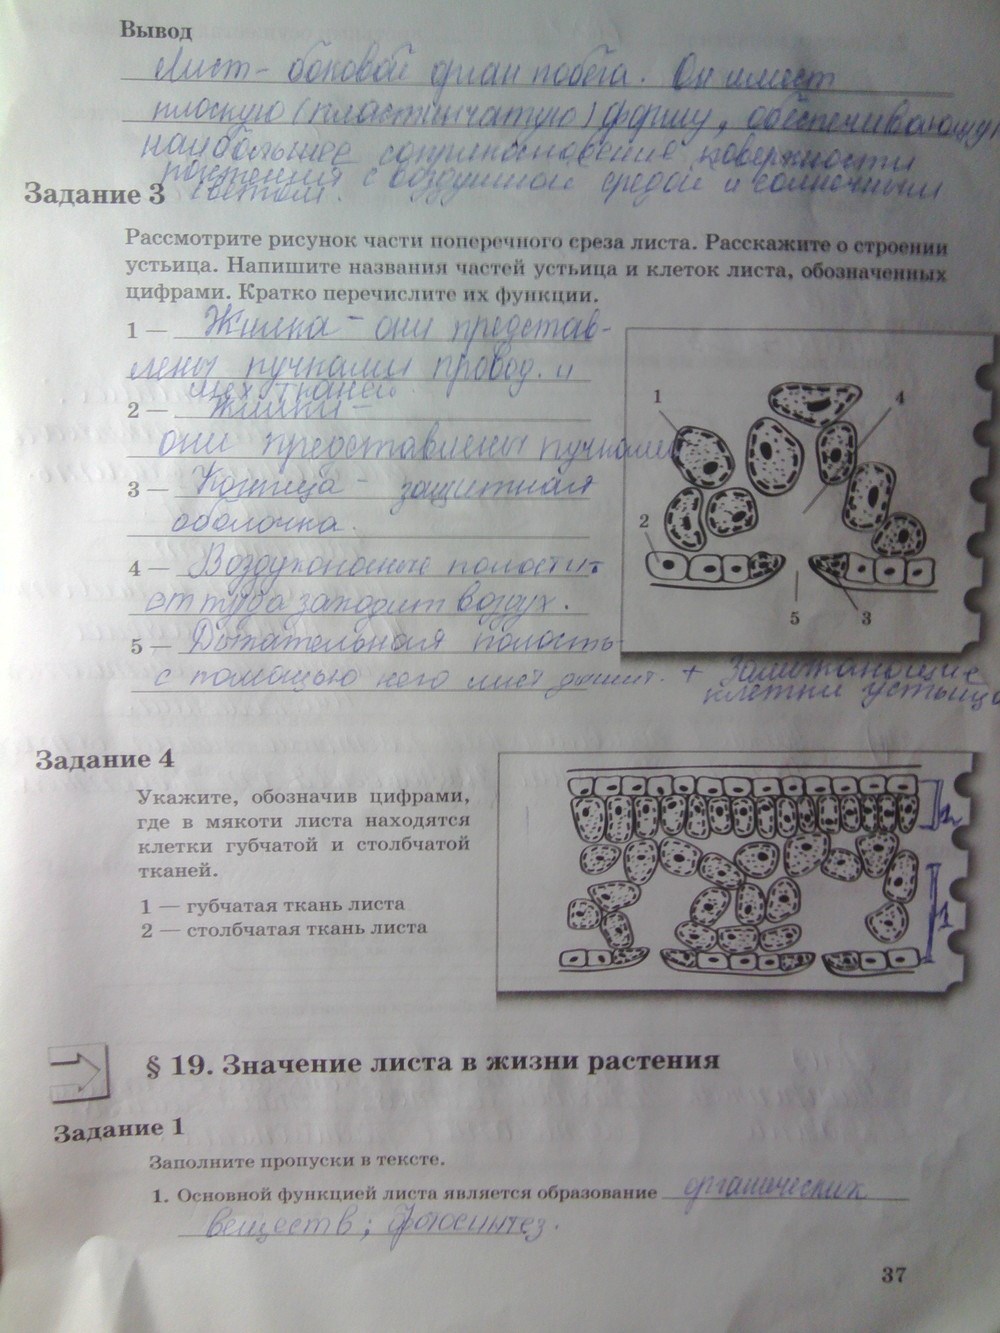 Вывод
Лист - боковой орган побега. Он имеет
плоскую (пластинчатую) форму, обеспечивающую
наибольшее соприкосновение поверхности
растения с воздушной средой и солнечным
светом.
Задание 3
Рассмотрите рисунок части поперечного среза листа. Расскажите о строении
устьица. Напишите названия частей устьица и клеток листа, обозначенных
цифрами. Кратко перечислите их функции.
1 — Жилка - они представ-
лены пучками провод. и
мех тканей.
2 — Жилки -
они представлены пучками
3 — Кожица - защитная
оболочка.
4 — Воздухоносные полости -
от туда заходит воздух.
5 — Дыхательная полость -
с помощью кого лист дышит. + Замыкающие
клетки устьица
1
4
2
5
3
Задание 4
Укажите, обозначив цифрами,
где в мякоти листа находятся
клетки губчатой и столбчатой
тканей.
1 — губчатая ткань листа
2 — столбчатая ткань листа
2
1
§ 19. Значение листа в жизни растения
Задание 1
Заполните пропуски в тексте.
1. Основной функцией листа является образование органических
веществ; фотосинтез.
37